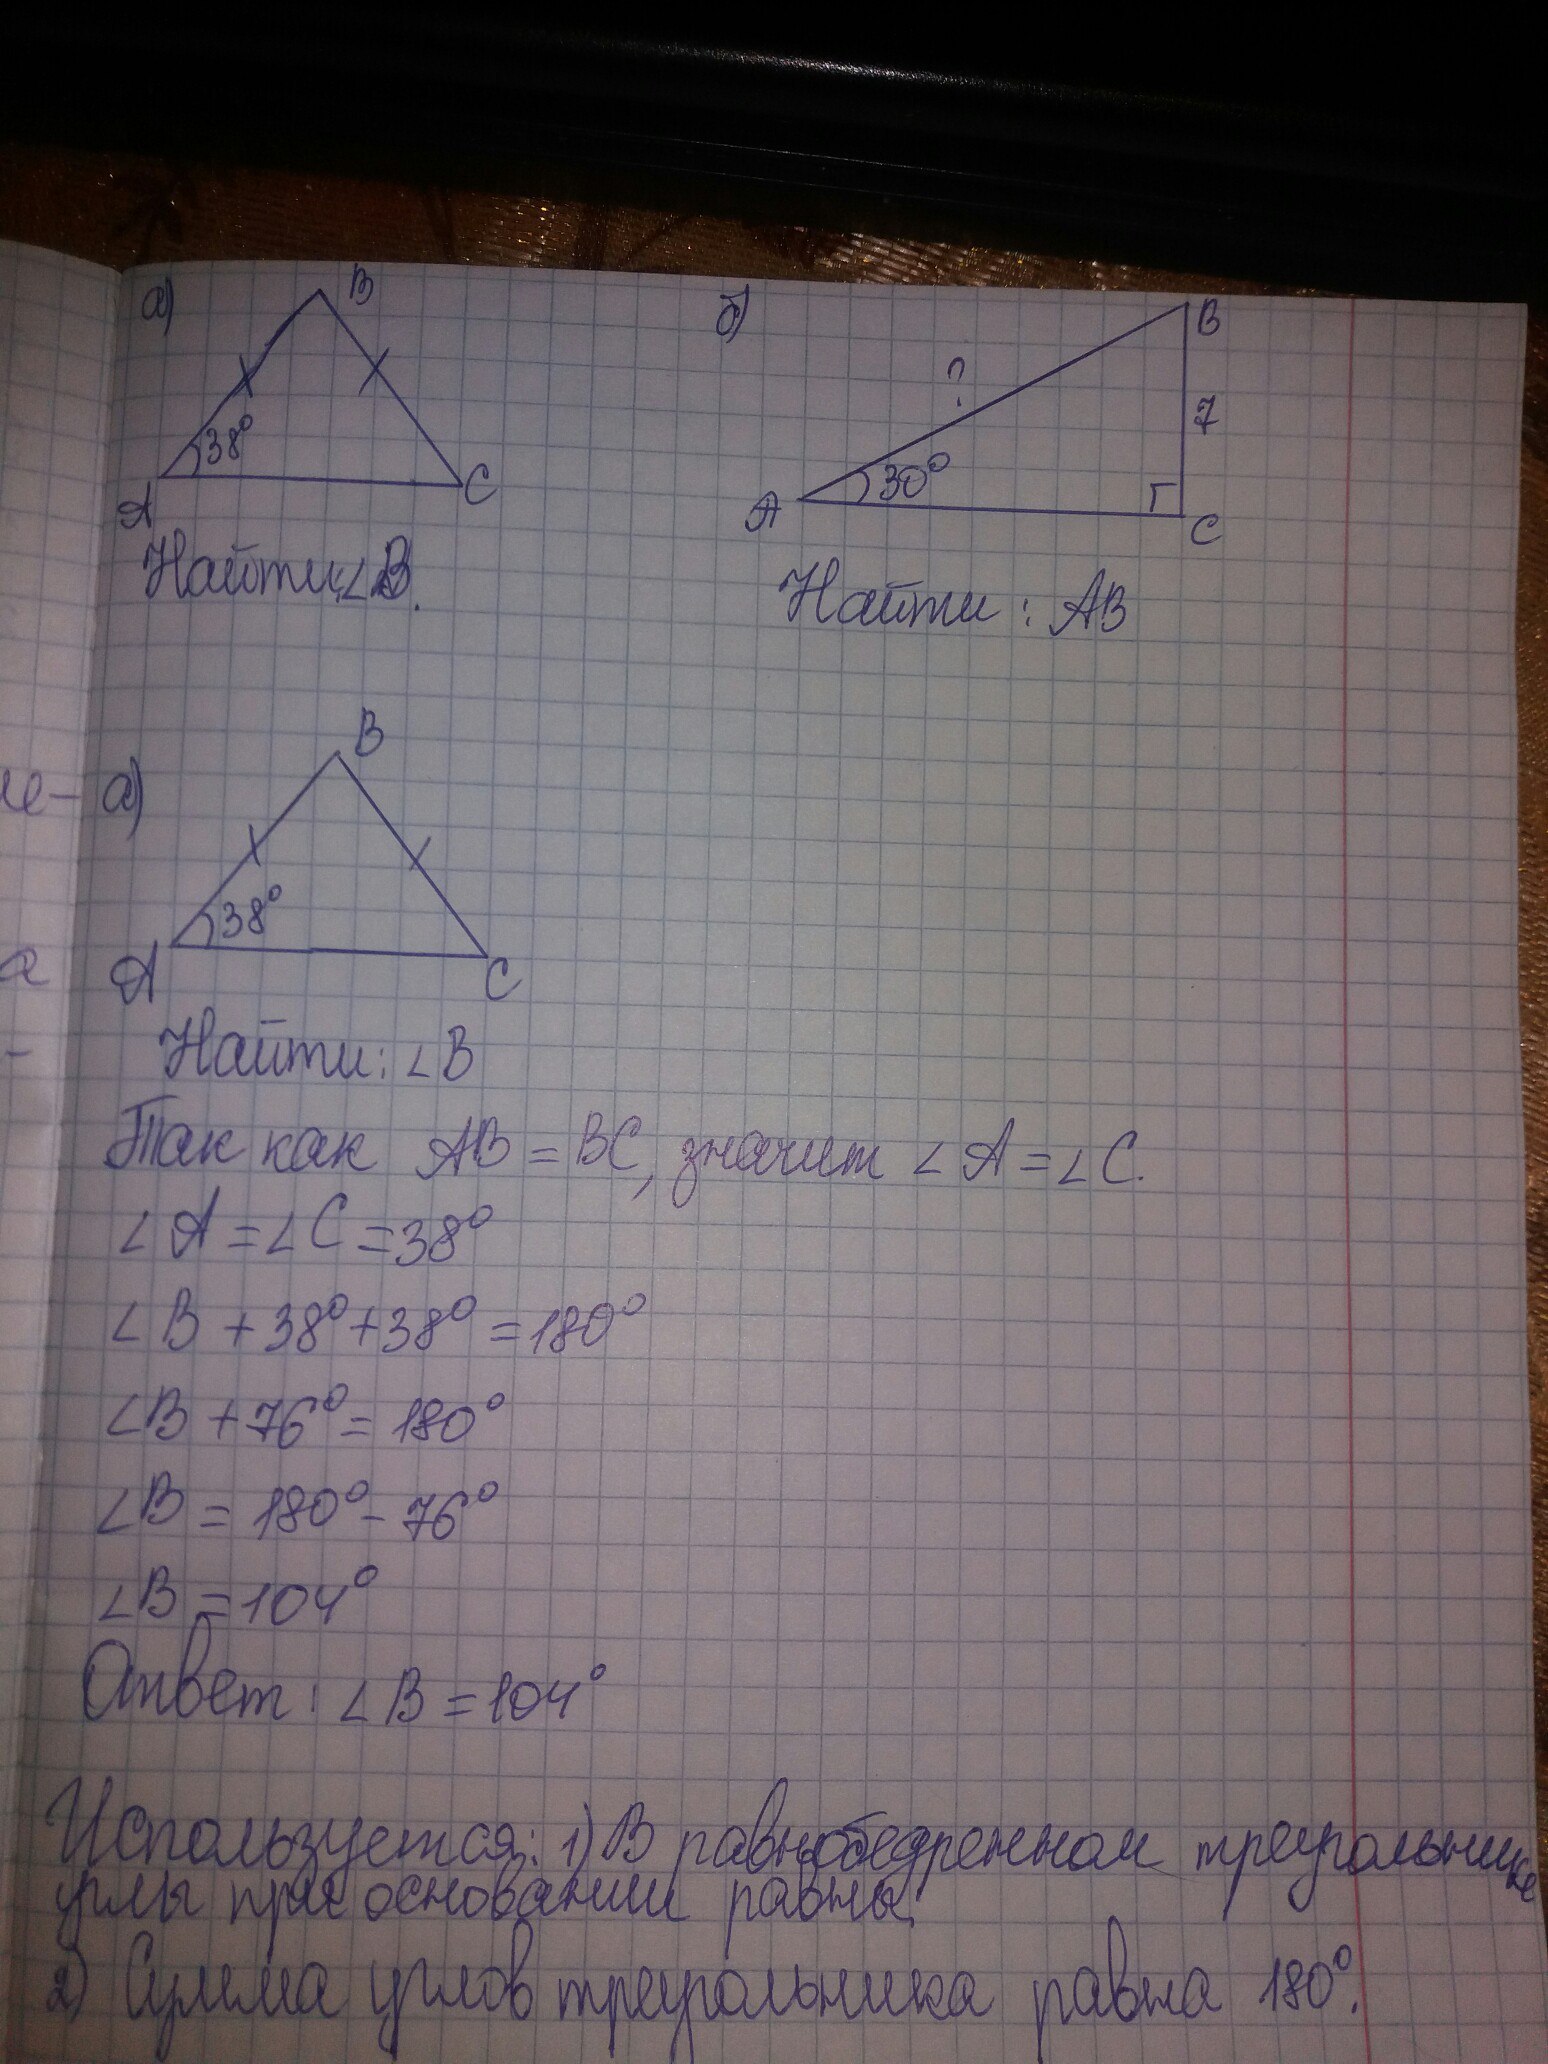 а) B
38°
A C
Найти: ∠B.
б) B
?
7
30°
A C
Найти: AB
а) B
38°
A C
Найти: ∠B
Так как AB = BC, значит ∠A = ∠C.
∠A = ∠C = 38°
∠B + 38° + 38° = 180°
∠B + 76° = 180°
∠B = 180° - 76°
∠B = 104°
Ответ: ∠B = 104°
Используется: 1) В равнобедренном треугольнике
углы при основании равны
2) Сумма углов треугольника равна 180°.
ле-
а
-